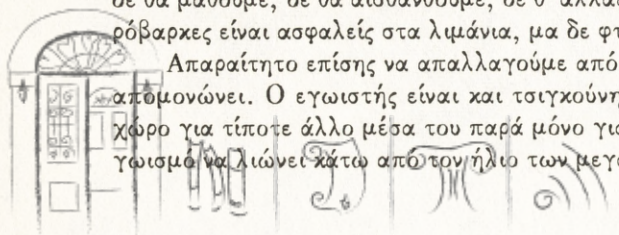 δε θα μάθουμε, δε θα αισθανθούμε, δε θ' αλλά
ρόβαρκες είναι ασφαλείς στα λιμάνια, μα δε φτ
Απαραίτητο επίσης να απαλλαγούμε από
απομονώνει. Ο εγωιστής είναι και τσιγκούνη
χώρο για τίποτε άλλο μέσα του παρά μόνο για
γωισμό να λιώνει κάτω από τον ήλιο των μεγά